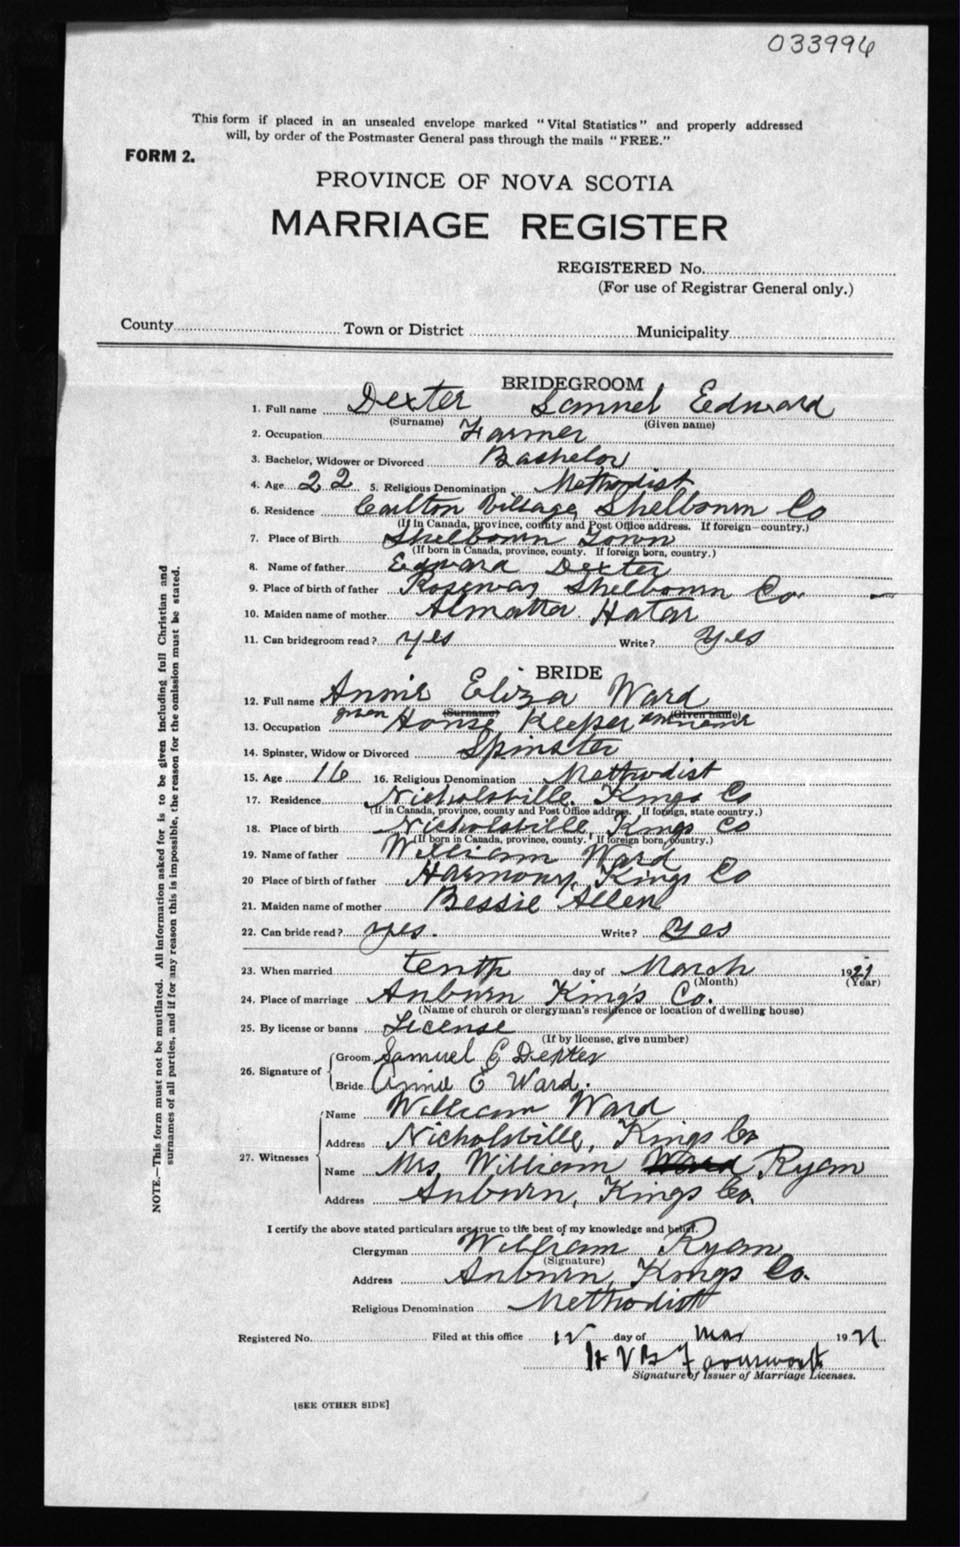 033996
This form if placed in an unsealed envelope marked "Vital Statistics" and properly addressed
will, by order of the Postmaster General pass through the mails "FREE."
FORM 2.
PROVINCE OF NOVA SCOTIA
MARRIAGE REGISTER
REGISTERED No.
(For use of Registrar General only.)
County Town or District Municipality
BRIDEGROOM
1. Full name Dexter Samuel Edward
(Surname) (Given name)
2. Occupation Farmer
3. Bachelor, Widower or Divorced Bachelor
4. Age 22 5. Religious Denomination Methodist
6. Residence Carlton Village Shelbourn Co
(If in Canada, province, county and Post Office address. If foreign—country.)
7. Place of Birth Shelbourn Town
(If born in Canada, province, county. If foreign born, country.)
8. Name of father Edward Dexter
9. Place of birth of father Roseway Shelbourn Co.
10. Maiden name of mother Almatta
11. Can bridegroom read? yes Write? Yes
BRIDE
12. Full name Annie Eliza Ward
given (Surname) (Given name)
13. Occupation House Keeper
14. Spinster, Widow or Divorced Spinster
15. Age 16 16. Religious Denomination Methodist
17. Residence Nicholsville, Kings Co
(If in Canada, province, county and Post Office address. If foreign, state country.)
18. Place of birth Nicholsville, Kings Co
(If born in Canada, province, county. If foreign born, country.)
19. Name of father William Ward
20 Place of birth of father Harmony, Kings Co
21. Maiden name of mother Bessie Allen
22. Can bride read? yes. Write? Yes
23. When married tenth day of March 1921
(Month) (Year)
24. Place of marriage Auburn King's Co.
(Name of church or clergyman's residence or location of dwelling house)
25. By license or banns License
(If by license, give number)
26. Signature of Groom Samuel E Dexter
Bride Annie E Ward.
27. Witnesses Name William Ward
Address Nicholsville, Kings Co
Name Mrs. William Ward Ryan
Address Auburn, Kings Co.
I certify the above stated particulars are true to the best of my knowledge and belief.
Clergyman William Ryan
(Signature)
Address Auburn, Kings Co.
Religious Denomination Methodist
Registered No. Filed at this office day of Mar 1921
H V B Farnsworth
Signature of Issuer of Marriage Licenses.
[SEE OTHER SIDE]
NOTE.—This form must not be mutilated. All information asked for is to be given including full Christian and
surnames of all parties, and if for any reason this is impossible, the reason for the omission must be stated.